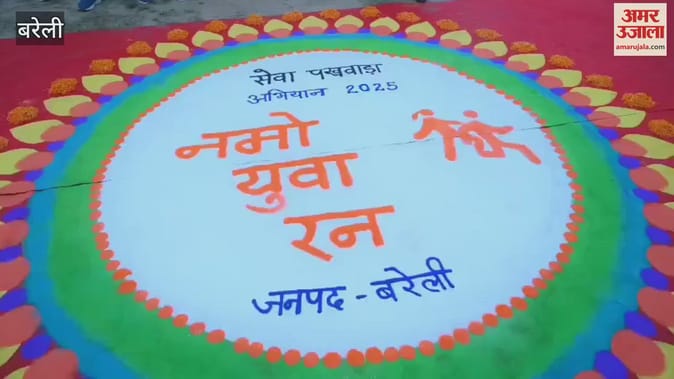 बरेली
अमर उजाला
amarujala.com
सेवा पखवाड़ा
अभियान 2025
नमो
युवा
रन
जनपद - बरेली